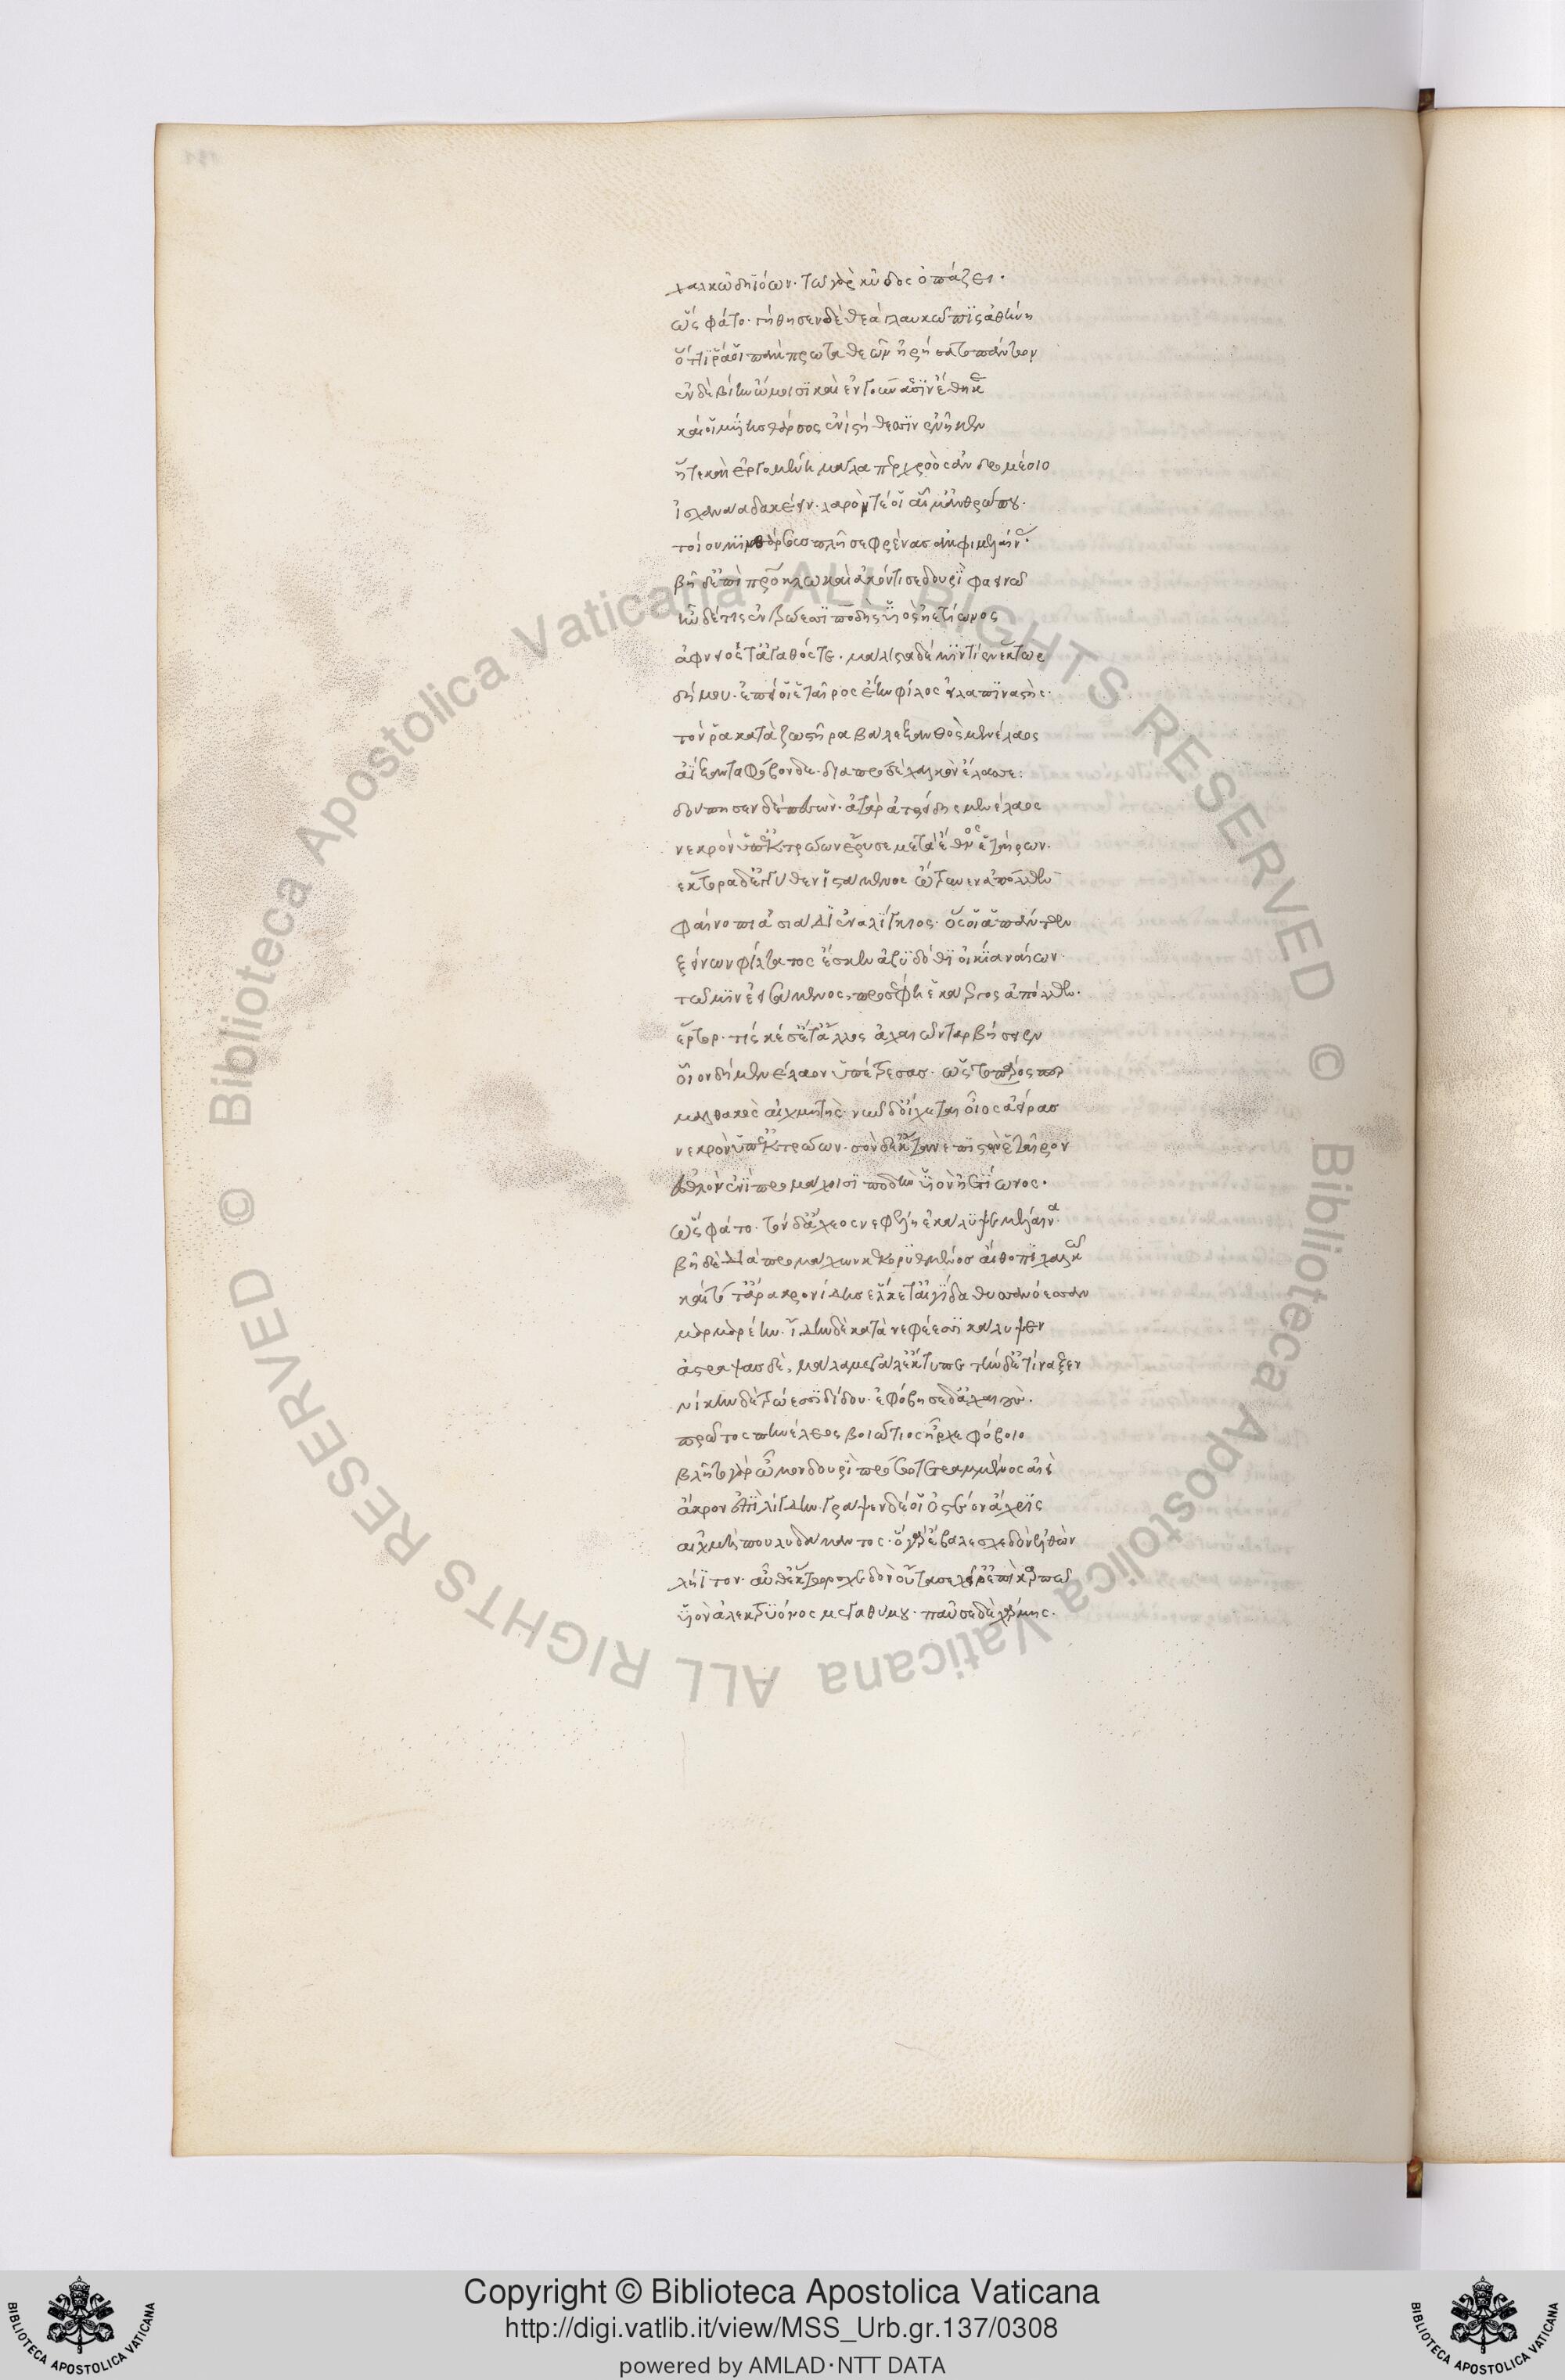 χαλκῶ δηϊόων· τῶ γὰρ κῦδος ὀπάζει·
ὣς φάτο· γήθησεν δὲ θεὰ γλαυκῶπις ἀθήνη
ὅττί ῥά οἱ πάμπρωτα θεῶν ἠρήσατο πάντων
ἐν δὲ βίην ὤμοισι καὶ ἐν γούνασσιν ἔθηκε
καί οἱ μυίης θάρσος ἐνὶ στήθεσσιν ἐνῆκεν
ἥτε καὶ ἐργομένη μάλα περ χροὸς ἀνδρομέοιο
ἰσχανάα δακέειν· λαρόν τέ οἱ αἷμ' ἀνθρώπου·
τοίου μιν θάρσους πλῆσε φρένας ἀμφιμελαίνας·
βῆ δ' ἐπὶ πρόκλω καὶ ἀκόντισε δουρὶ φαεινῶ
ἦν δέ τις ἐν τρώεσσι ποδῆς υἱὸς ἠετίωνος
ἀφνειός τ' ἀγαθός τε· μάλιστα δέ μιν τίεν ἕκτωρ
δήμου· ἐπεί οἱ ἑταῖρος ἔην φίλος εἰλαπιναστής·
τόν ῥα κατὰ ζωστῆρα βάλε ξανθὸς μενέλαος
ἀΐξαντα φόβονδε· διαπρὸ δὲ χαλκὸν ἔλασσε·
δούπησεν δὲ πεσών· ἀτὰρ ἀτρείδης μενέλαος
νεκρὸν ὑπ' ἐκ τρώων ἔρυσε μετὰ ἔθνος ἑταίρων·
ἕκτορα δ' ἐγγύθεν ἱστάμενος ὤτρυνεν ἀπόλλων
φαίνοπι ἀσιάδη ἐναλίγκιος· ὅς οἱ ἁπάντων
ξείνων φίλτατος ἔσκεν ἀβυδόθι οἰκία ναίων·
τῶ μιν ἐεισάμενος, προσέφη ἑκάεργος ἀπόλλων·
ἕκτορ· τίς κέ σ' ἔτ' ἄλλος ἀχαιῶν ταρβήσειεν
οἷον δὴ μενέλαον ὑπέτρεσας· ὃς τὸ πάρος περ
μαλθακὸς αἰχμητής· νῦν δ' οἴχεται οἶος ἀείρας
νεκρὸν ὑπ' ἐκ τρώων· σὸν δ' ἔκτανε πιστὸν ἑταῖρον
ἐσθλὸν ἐνὶ προμάχοισι ποδῆν υἱὸν ἠετίωνος·
ὣς φάτο· τὸν δ' ἄχεος νεφέλη ἐκάλυψε μέλαινα
βῆ δὲ διὰ προμάχων κεκορυθμένος αἴθοπι χαλκῶ
καὶ τότ' ἄρα κρονίδης ἕλκετ' αἰγίδα θυσσανόεσσαν
μαρμαρέην· ἴδην δὲ κατὰ νεφέεσσι κάλυψεν
ἀστράψας δὲ, μάλα μεγάλ' ἔκτυπε τὴν δ' ἐτίναξεν
νίκην δὲ τρώεσσι δίδου· ἐφόβησε δ' ἀχαιούς·
πρῶτος πηνέλεως βοιώτιος ἦρχε φόβοιο
βλῆτο γὰρ ὦμον δουρὶ πρόσω τετραμμένος αἰεὶ
ἄκρον ἐπιλίγδην· γράψεν δέ οἱ ὀστέον ἄχρις
αἰχμὴ πουλυδάμαντος· ὃ γάρ ῥ' ἔβαλε σχεδὸν ἐλθών
λήϊτον· αὖθ' ἕκτωρ σχεδὸν οὔτασε χεῖρ' ἐπὶ καρπῶ
υἱὸν ἀλεκτρυόνος μεγαθύμου· παῦσε δὲ χάρμης·
Copyright © Biblioteca Apostolica Vaticana
http://digi.vatlib.it/view/MSS_Urb.gr.137/0308
powered by AMLAD·NTT DATA